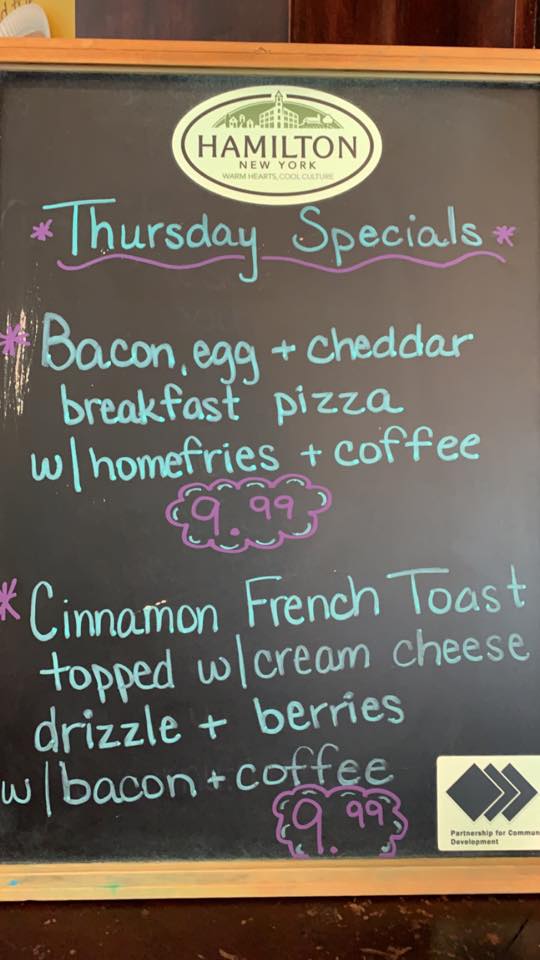 HAMILTON
NEW YORK
WARM HEARTS, COOL CULTURE
* Thursday Specials *
* Bacon, egg + cheddar
breakfast pizza
w/homefries + coffee
9.99
* Cinnamon French Toast
topped w/cream cheese
drizzle + berries
w/bacon + coffee
9.99
Partnership for Commun
Development